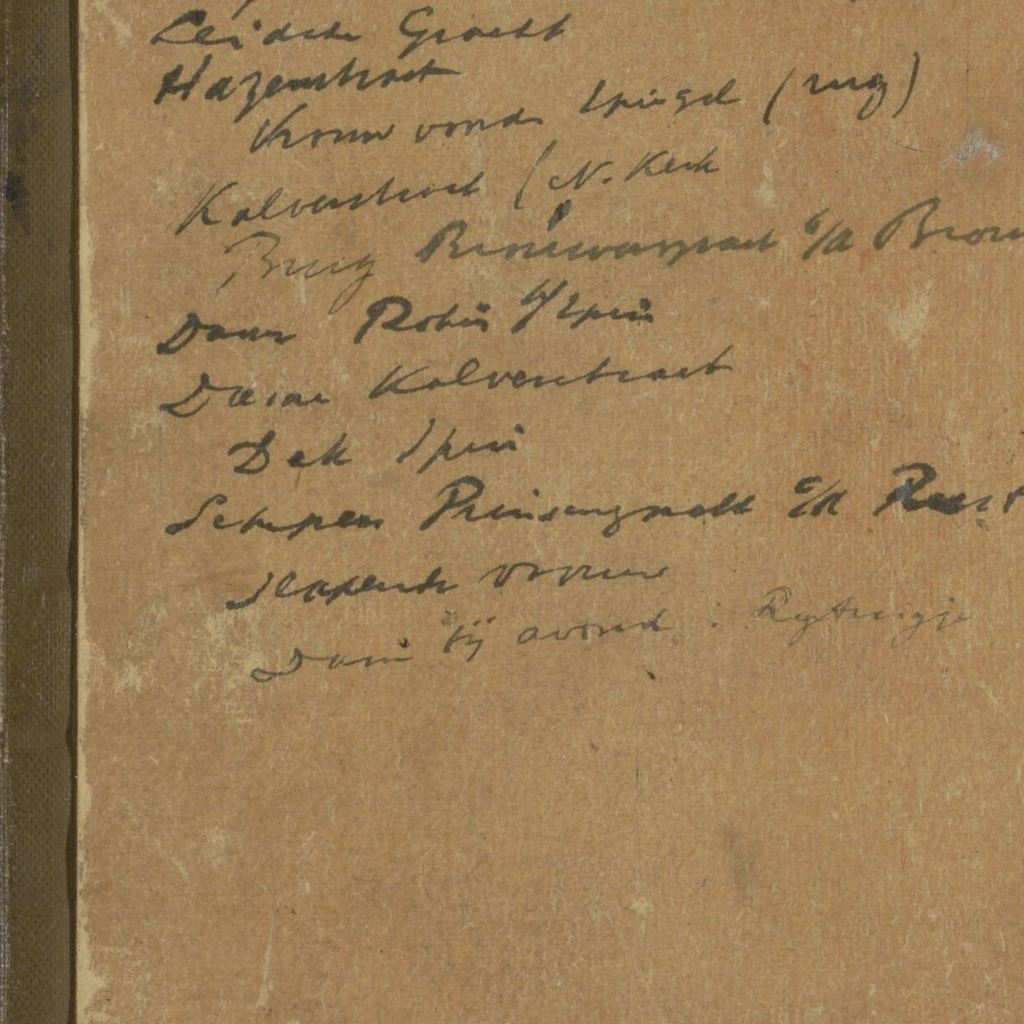 Leidsche Gracht
Hazenstraat
Vrouw voor de Spiegel (rug)
Kalverstraat (N. Kerk
Brug Brouwersgracht
Dam Rokin
Dame Kalverstraat
Dek
Schepen Prinsengracht
Slapende vrouw
Dam bij avond : Rijtuigje